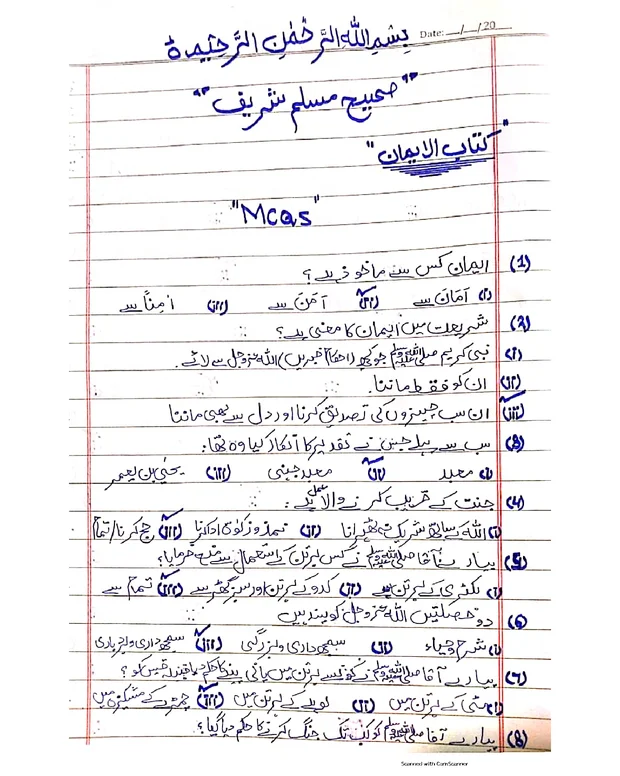 Date: __/__/20__
بِسْمِ اللهِ الرَّحْمٰنِ الرَّحِيْمِ ۝
"صحیح مسلم شریف"
"کتاب الایمان"
"Mcqs"
(1) ایمان کس سے ماخوذ ہے؟
(i) اَمَانَ سے (ii) اَمَنَ سے (iii) اَمِنًا سے
(2) شریعت میں ایمان کا معنی ہے؟
(i) نبی کریم ﷺ جو کچھ (احکام/خبریں) اللہ عزوجل سے لائے۔
(ii) ان کو فقط ماننا۔
(iii) ان سب چیزوں کی تصدیق کرنا اور دل سے بھی ماننا
(3) سب سے پہلے جس نے تقدیر کا انکار کیا وہ تھا:
(i) معبد (ii) معبد جہنی (iii) یحیٰی بن یعمر
(4) جنت کے قریب کرنے والا عمل ہے:
(i) اللہ کے ساتھ شریک نہ ٹھہرانا (ii) نماز و زکوۃ ادا کرنا (iii) حج کرنا/تمام
(5) پیارے آقا ﷺ نے کس برتن کے استعمال سے منع فرمایا؟
(i) لکڑی کے برتن سے (ii) کدو کے برتن اور سبز گھڑے سے (iii) تمام سے
(6) دو خصلتیں اللہ عزوجل کو پسند ہیں
(i) شرم و حیاء (ii) سمجھداری و بزرگی (iii) سمجھداری و بردباری
(7) پیارے آقا ﷺ نے کونسے برتن میں پانی پینے کا حکم دیا قبیلہ قیس کو؟
(i) مٹی کے برتن میں (ii) لوہے کے برتن میں (iii) چمڑے کے مشکیزہ میں
(8) پیارے آقا ﷺ کو کب تک جنگ کرنے کا حکم دیا گیا؟
Scanned with CamScanner